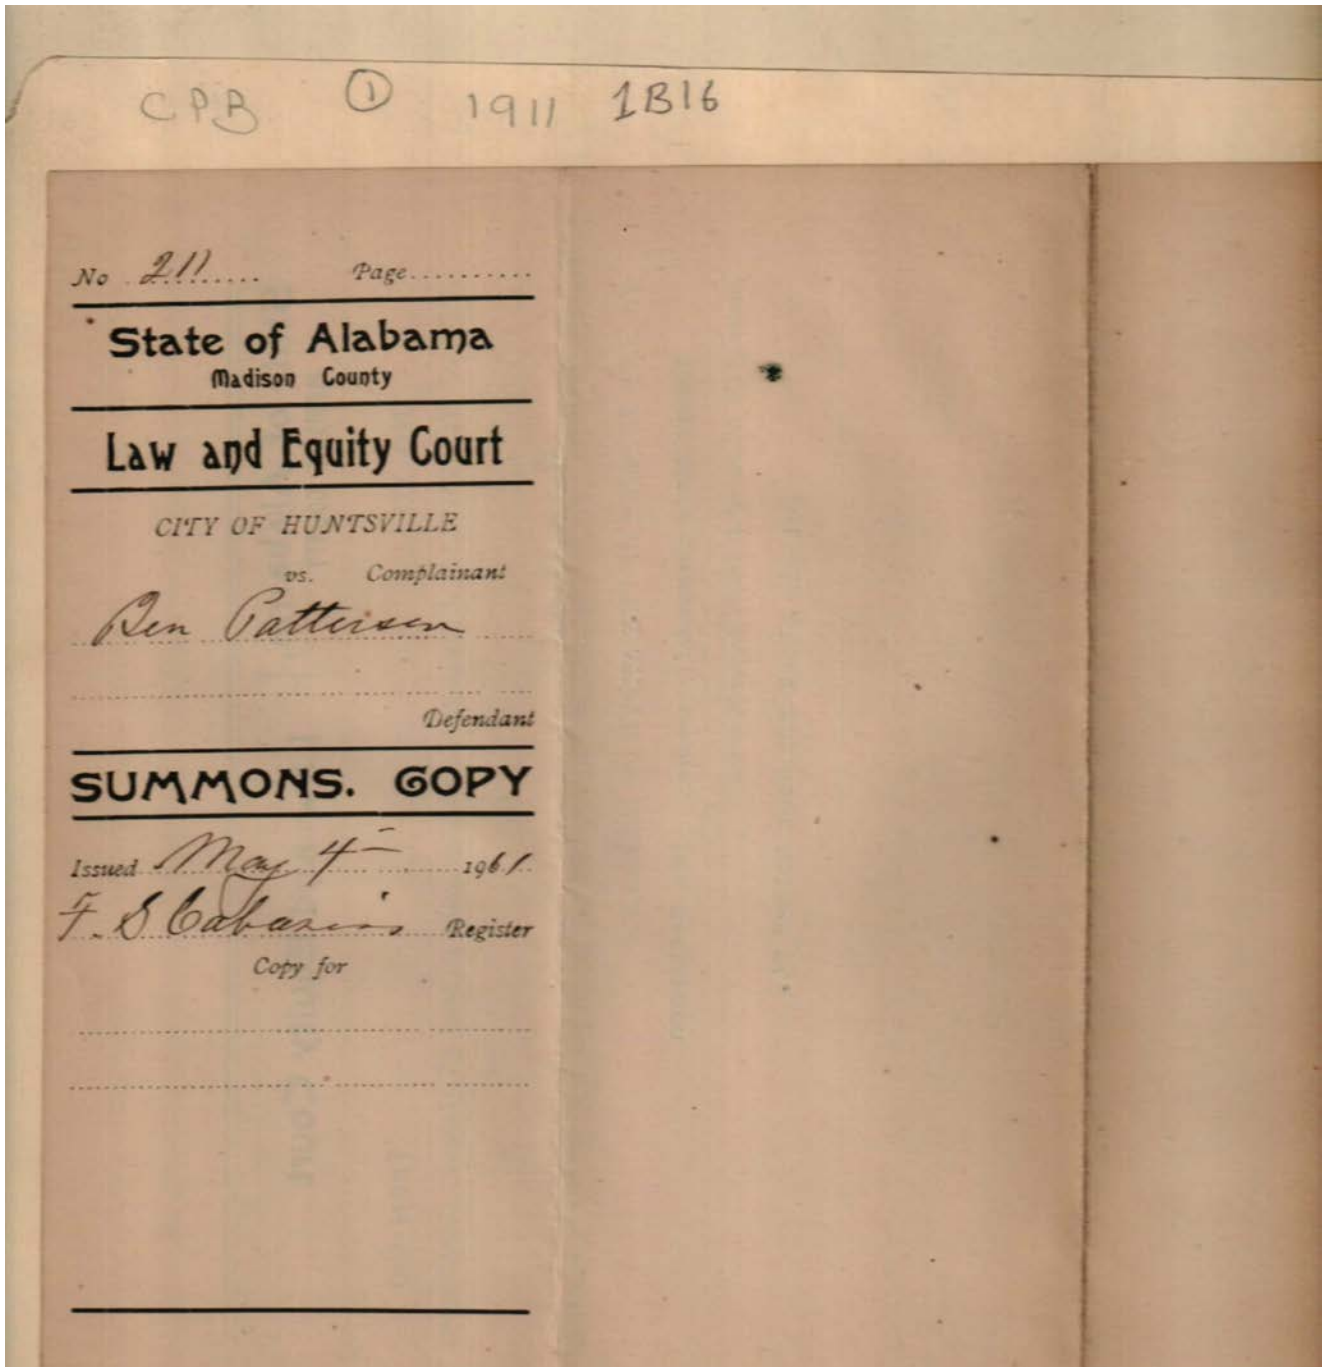 CPB ① 1911 1B16
No 211 Page
State of Alabama
Madison County
Law and Equity Court
CITY OF HUNTSVILLE
vs. Complainant
Ben Patterson
Defendant
SUMMONS. COPY
Issued May 4 1911
F. S Cabaniss Register
Copy for